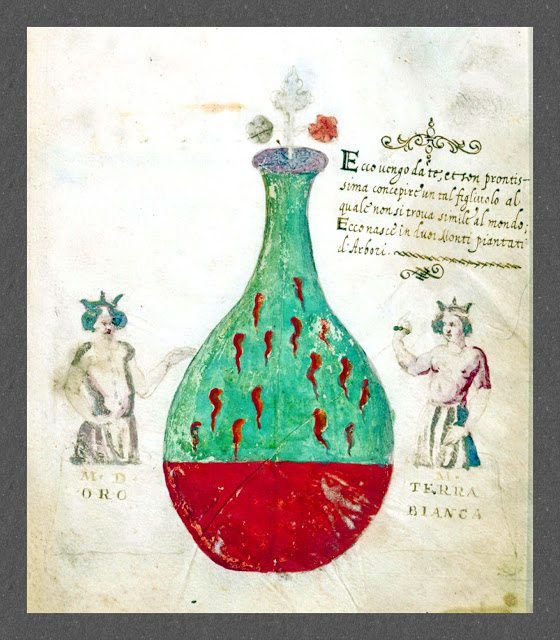 Ecco vengo da te, et son prontis-
sima concepire un tal figliuolo al
quale non si trova simile al mondo;
Ecco nasce in duoi Monti piantati
d'Arbori.
M. D.
ORO
M.
TERRA
BIANCA